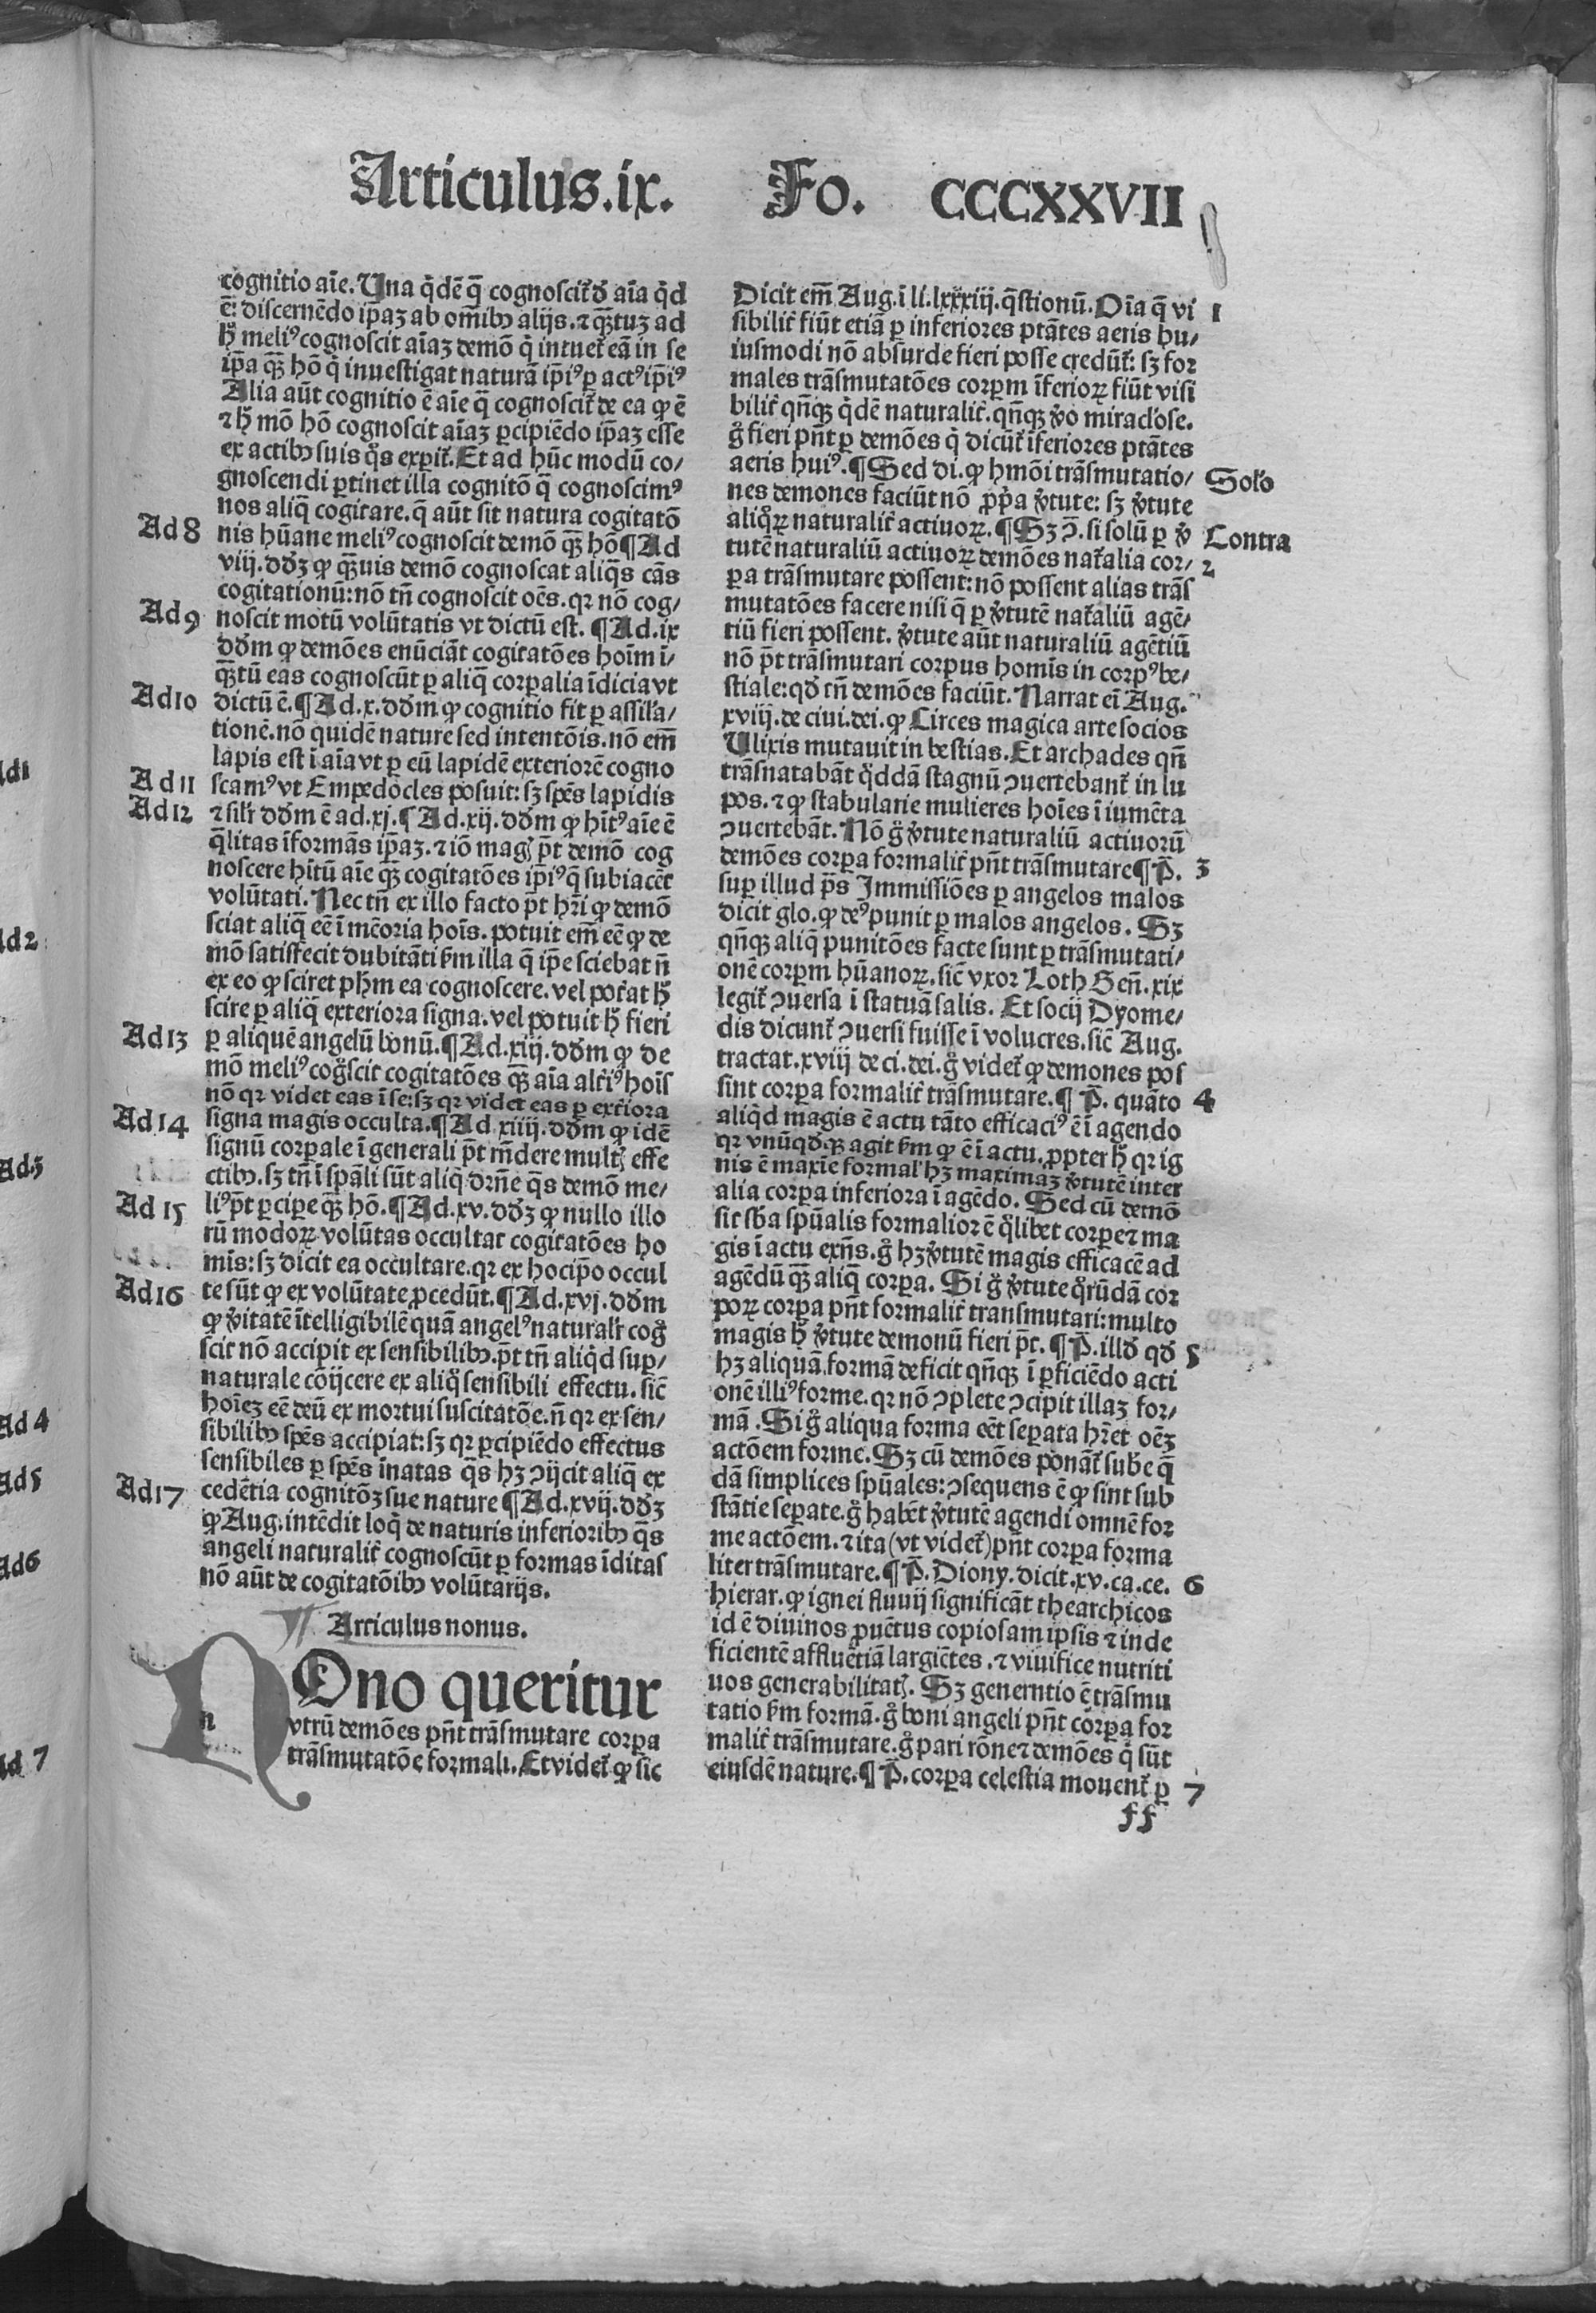 Articulus.ix. Fo. CCCXXVII
cognitio aīe. Una q̇dē q̄ cognoscit᷑ ꝺ aīa q̇d
ē: discernēdo ip̄aꝫ ab om̄ibꝰ alijs. ⁊ qꝫ̄tuꝫ ad
ħ meliꝰ cognoscit aīaꝫ demō q̇ intuet᷑ eā in se
ip̄a qꝫ̄ hō q̇ inuestigat naturā ip̄iꝰ ꝑ actꝰ ip̄iꝰ
Alia aūt cognitio ē aīe q̄ cognoscit᷑ de ea ꝙ ē
⁊ ħ mō hō cognoscit aīaꝫ ꝑcipiēdo ip̄aꝫ esse
ex actibꝰ suis qͦs exꝑit᷑. Et ad hūc modū co/
gnoscendi ꝑtinet illa cognitō q̄ cognoscimꝰ
nos aliq̄ cogitare. q̄ aūt sit natura cogitatō
Ad 8 nis hūane meliꝰ cognoscit demō qꝫ̄ hō ¶ Ad
viij. dd̄ꝫ ꝙ qꝫ̄uis demō cognoscat aliq̄s cās
cogitationū: nō tn̄ cognoscit oēs. qꝛ nō cog/
Ad 9 noscit motū volūtatis vt dictū est. ¶ Ad. ix
dd̄m ꝙ demōes enūciāt cogitatōes hoīm ī/
qꝫ̄tū eas cognoscūt ꝑ aliq̄ corꝑalia īdicia vt
Ad 10 dictū ē. ¶ Ad. x. dd̄m ꝙ cognitio fit ꝑ assil̓a/
tionē. nō quidē nature sed intentōis. nō em̄
lapis est ī aīa vt ꝑ eū lapidē exteriorē cogno
Ad 11 scamꝰ vt Empedocles posuit: sꝫ sp̄es lapidis
Ad 12 ⁊ sil̓r dd̄m ē ad. xj. ¶ Ad. xij. dd̄m ꝙ hīt᷑ꝰ aīe ē
q̄litas īformās ip̄aꝫ. ⁊ iō magꝭ p̄t demō cog
noscere hītū aīe qꝫ̄ cogitatōes ip̄iꝰ q̄ subiacēt
volūtati. Nec tn̄ ex illo facto p̄t hr̄i ꝙ demō
sciat aliq̄ eē ī mēoria hoīs. potuit em̄ eē ꝙ de
mō satisfecit dubitāti ẜm illa q̄ ip̄e sciebat n̄
ex eo ꝙ sciret pħm ea cognoscere. vel pot᷑at ħ
scire ꝑ aliq̄ exteriora signa. vel potuit ħ fieri
Ad 13 ꝑ aliquē angelū bonū. ¶ Ad. xiij. dd̄m ꝙ de
mō meliꝰ cogͦscit cogitatōes qꝫ̄ aīa alt᷑iꝰ hoīs
nō qꝛ videt eas ī se: sꝫ qꝛ videt eas ꝑ ext᷑iora
Ad 14 signa magis occulta. ¶ Ad xiiij. dd̄m ꝙ idē
signū corꝑale ī generali p̄t rn̄dere multꝭ effe
ctibꝰ. sꝫ tn̄ ī sp̄ali sūt aliq̄ dr̄ne q̄s demō me/
Ad 15 liꝰ p̄t ꝑciꝑe qꝫ̄ hō. ¶ Ad. xv. dd̄ꝫ ꝙ nullo illo
rū modoꝝ volūtas occultat cogitatōes ho
mīs: sꝫ dicit ea occultare. qꝛ ex hoc ip̄o occul
Ad 16 te sūt ꝙ ex volūtate ꝓcedūt. ¶ Ad. xvj. dd̄m
ꝙ v̓itatē ītelligibilē quā angelꝰ natural̓r cogͦ
scit nō accipit ex sensibilibꝰ. p̄t tn̄ aliq̇d suꝑ/
naturale cōijcere ex aliqͦ sensibili effectu. sic̄
hoīeꝫ eē deū ex mortui suscitatōe. n̄ qꝛ ex sen/
sibilibꝰ sp̄es accipiat: sꝫ qꝛ ꝑcipiēdo effectus
sensibiles ꝑ sp̄es īnatas q̄s hꝫ ꝯijcit aliq̄ ex
Ad 17 cedētia cognitōꝫ sue nature ¶ Ad. xvij. dd̄ꝫ
ꝙ Aug. intēdit loq̇ de naturis inferioribꝰ q̄s
angeli naturalit᷑ cognoscūt ꝑ formas īditas
nō aūt de cogitatōibꝰ volūtarijs.
Articulus nonus.
NOno queritur
vtrū demōes pn̄t trāsmutare corꝑa
trāsmutatōe formali. Et videt᷑ ꝙ sic
Dicit em̄ Aug. ī li. lxxxiij. q̄stionū. Oīa q̄ vi 1
sibilit᷑ fiūt etiā ꝑ inferiores ptātes aeris hu/
iusmodi nō absurde fieri posse credūt᷑: sꝫ for
males trāsmutatōes corꝑm īferioꝝ fiūt visi
bilit᷑ qn̄qꝫ q̇dē naturalit᷑. qn̄qꝫ v̓o miracl̓ose.
gͦ fieri pn̄t ꝑ demōes q̇ dicūt᷑ īferiores ptātes
aeris huiꝰ. ¶ Sed di. ꝙ hmōi trāsmutatio/ Sol̓o
nes demones faciūt nō ꝓp̄a v̓tute: sꝫ v̓tute
aliqͦꝝ naturalit᷑ actiuoꝝ. ¶ Sꝫ ꝯ̄. si solū ꝑ v̓ Contra
tutē naturaliū actiuoꝝ demōes nat᷑alia cor/ 2
ꝑa trāsmutare possent: nō possent alias trās
mutatōes facere nisi q̄ ꝑ v̓tutē nat᷑aliū agē/
tiū fieri possent. v̓tute aūt naturaliū agētiū
nō p̄t trāsmutari corpus homīs in corpꝰ be/
stiale: qd̄ tn̄ demōes faciūt. Narrat eī Aug.
xviij. de ciui. dei. ꝙ Circes magica arte socios
Ulixis mutauit in bestias. Et archades qn̄
trāsnatabāt q̇ddā stagnū ꝯuertebant᷑ in lu
pos. ⁊ ꝙ stabularie mulieres hoīes ī iumēta
ꝯuertebāt. Nō gͦ v̓tute naturaliū actiuorū
demōes corꝑa formalit᷑ pn̄t trāsmutare ¶ P̄. 3
suꝑ illud p̄s Immissiōes ꝑ angelos malos
dicit glo. ꝙ deꝰ punit ꝑ malos angelos. Sꝫ
qn̄qꝫ aliq̄ punitōes facte sunt ꝑ trāsmutati/
onē corꝑm hūanoꝝ. sic̄ vxor Loth Gen̄. xix
legit᷑ ꝯuersa ī statuā salis. Et socij Dyome/
dis dicunt᷑ ꝯuersi fuisse ī volucres. sic̄ Aug.
tractat. xviij de ci. dei. gͦ videt᷑ ꝙ demones pos
sint corꝑa formalit᷑ trāsmutare. ¶ P̄. quāto 4
aliq̇d magis ē actu tāto efficaciꝰ ē ī agendo
qꝛ vnūqd̄qꝫ agit ẜm ꝙ ē ī actu. ꝓpter ħ qꝛ ig
nis ē maxīe formal̓ hꝫ maximaꝫ v̓tutē inter
alia corꝑa inferiora ī agēdo. Sed cū demō
sit sb̄a spūalis formalior ē qͦlibet corꝑe ⁊ ma
gis ī actu exn̄s. gͦ hꝫ v̓tutē magis efficacē ad
agēdū qꝫ̄ aliq̄ corꝑa. Si gͦ v̓tute qͦrūdā cor
poꝝ corꝑa pn̄t formalit᷑ transmutari: multo
magis ħ v̓tute demonū fieri p̄t. ¶ P̄. illd̄ qd̄ 5
hꝫ aliquā formā deficit qn̄qꝫ ī ꝑficiēdo acti
onē illiꝰ forme. qꝛ nō ꝯplete ꝯcipit illaꝫ for/
mā. Si gͦ aliqua forma eēt seꝑata hr̄et oēꝫ
actōem forme. Sꝫ cū demōes ponāt᷑ sub̄e q̄
dā simplices spūales: ꝯsequens ē ꝙ sint sub
stātie seꝑate. gͦ habēt v̓tutē agendi omnē for
me actōem. ⁊ ita (vt videt᷑) pn̄t corꝑa forma
liter trāsmutare. ¶ P̄. Diony. dicit. xv. ca. ce. 6
hierar. ꝙ ignei fluuij significāt thearchicos
id ē diuinos ꝓuētus copiosam ipsis ⁊ inde
ficientē affluētiā largiētes. ⁊ viuifice nutriti
uos generabilitatꝭ. Sꝫ generntio ē trāsmu
tatio ẜm formā. gͦ boni angeli pn̄t corꝑa for
malit᷑ trāsmutare. gͦ pari rōne ⁊ demōes q̇ sūt
eiusdē nature. ¶ P̄. corꝑa celestia mouent᷑ ꝑ 7
ff
Ad 1
Ad 2
Ad 3
Ad 4
Ad 5
Ad 6
Ad 7